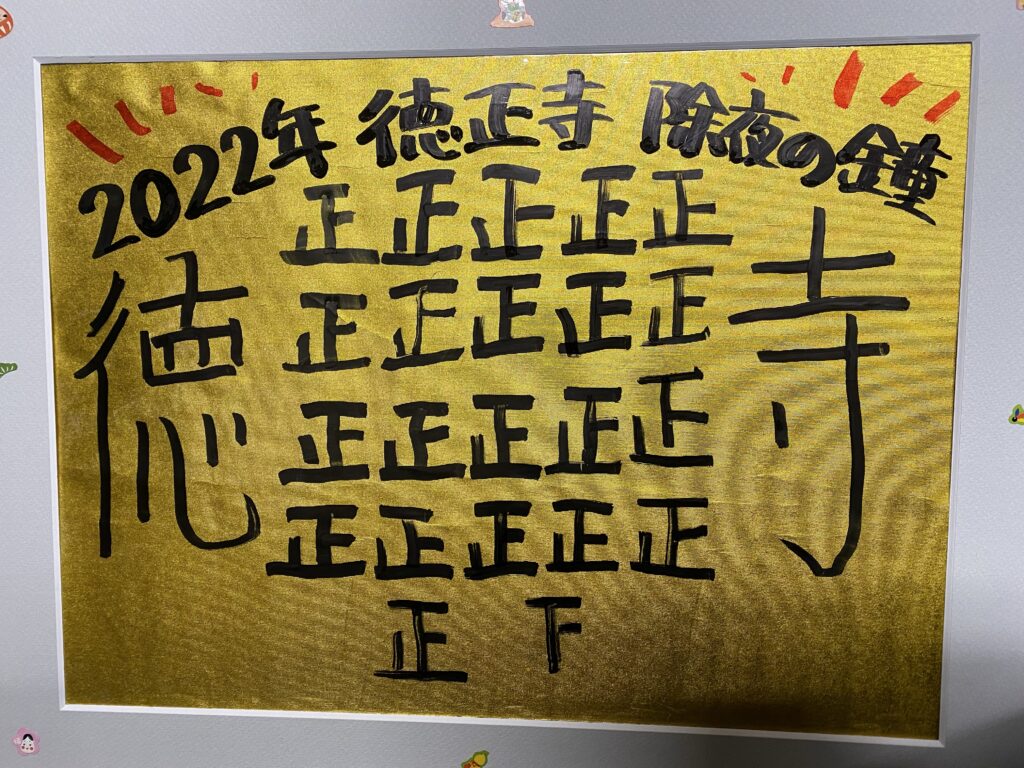 2022年 徳正寺 除夜の鐘
徳 寺
正正正正正
正正正正正
正正正正正
正正正正正
正 下